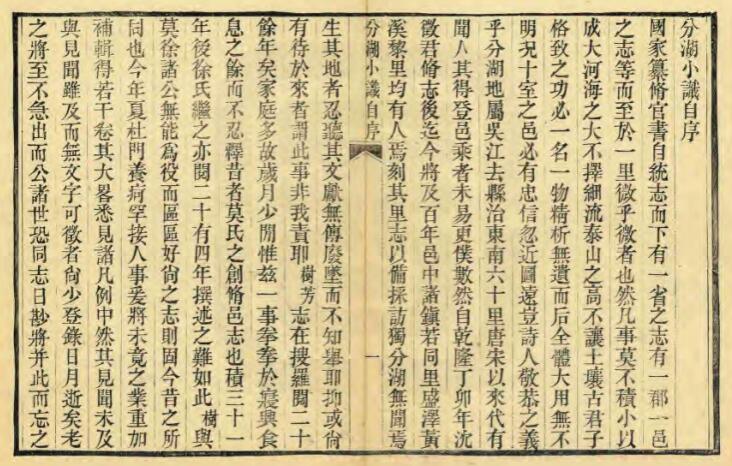 分湖小識自序
國家纂脩官書自統志而下有一省之志有一郡一邑
之志等而至於一里微乎微者也然凡事莫不積小以
成大河海之大不擇細流泰山之高不讓土壤古君子
格致之功必一名一物精析無遺而后全體大用無不
明況十室之邑必有忠信忽近圖遠豈詩人敬恭之義
乎分湖地屬吳江去縣治東南六十里唐宋以來代有
聞人其得登邑乘者未易更僕數然自乾隆丁卯年沈
徵君脩志後迄今將及百年邑中諸鎮若同里盛澤黃
溪黎里均有人焉刻其里志以備採訪獨分湖無聞焉
分湖小識自序
一
生其地者忍聽其文獻無傳廢墜而不知舉耶抑或尙
有待於來者謂此事非我責耶樹芳志在搜羅閱二十
餘年矣家庭多故歲月少閒惟茲一事拳拳於寢興食
息之餘而不忍釋昔者莫氏之創脩邑志也積三十一
年後徐氏繼之亦閱二十有四年撰述之難如此樹與
莫徐諸公無能爲役而區區好尙之志則固今昔之所
同也今年夏杜門養疴罕接人事爰將未竟之業重加
補輯得若干卷其大畧悉見諸凡例中然其見聞未及
與見聞雖及而無文字可徵者尙少登錄日月逝矣老
之將至不急出而公諸世恐同志日尠將并此而忘之